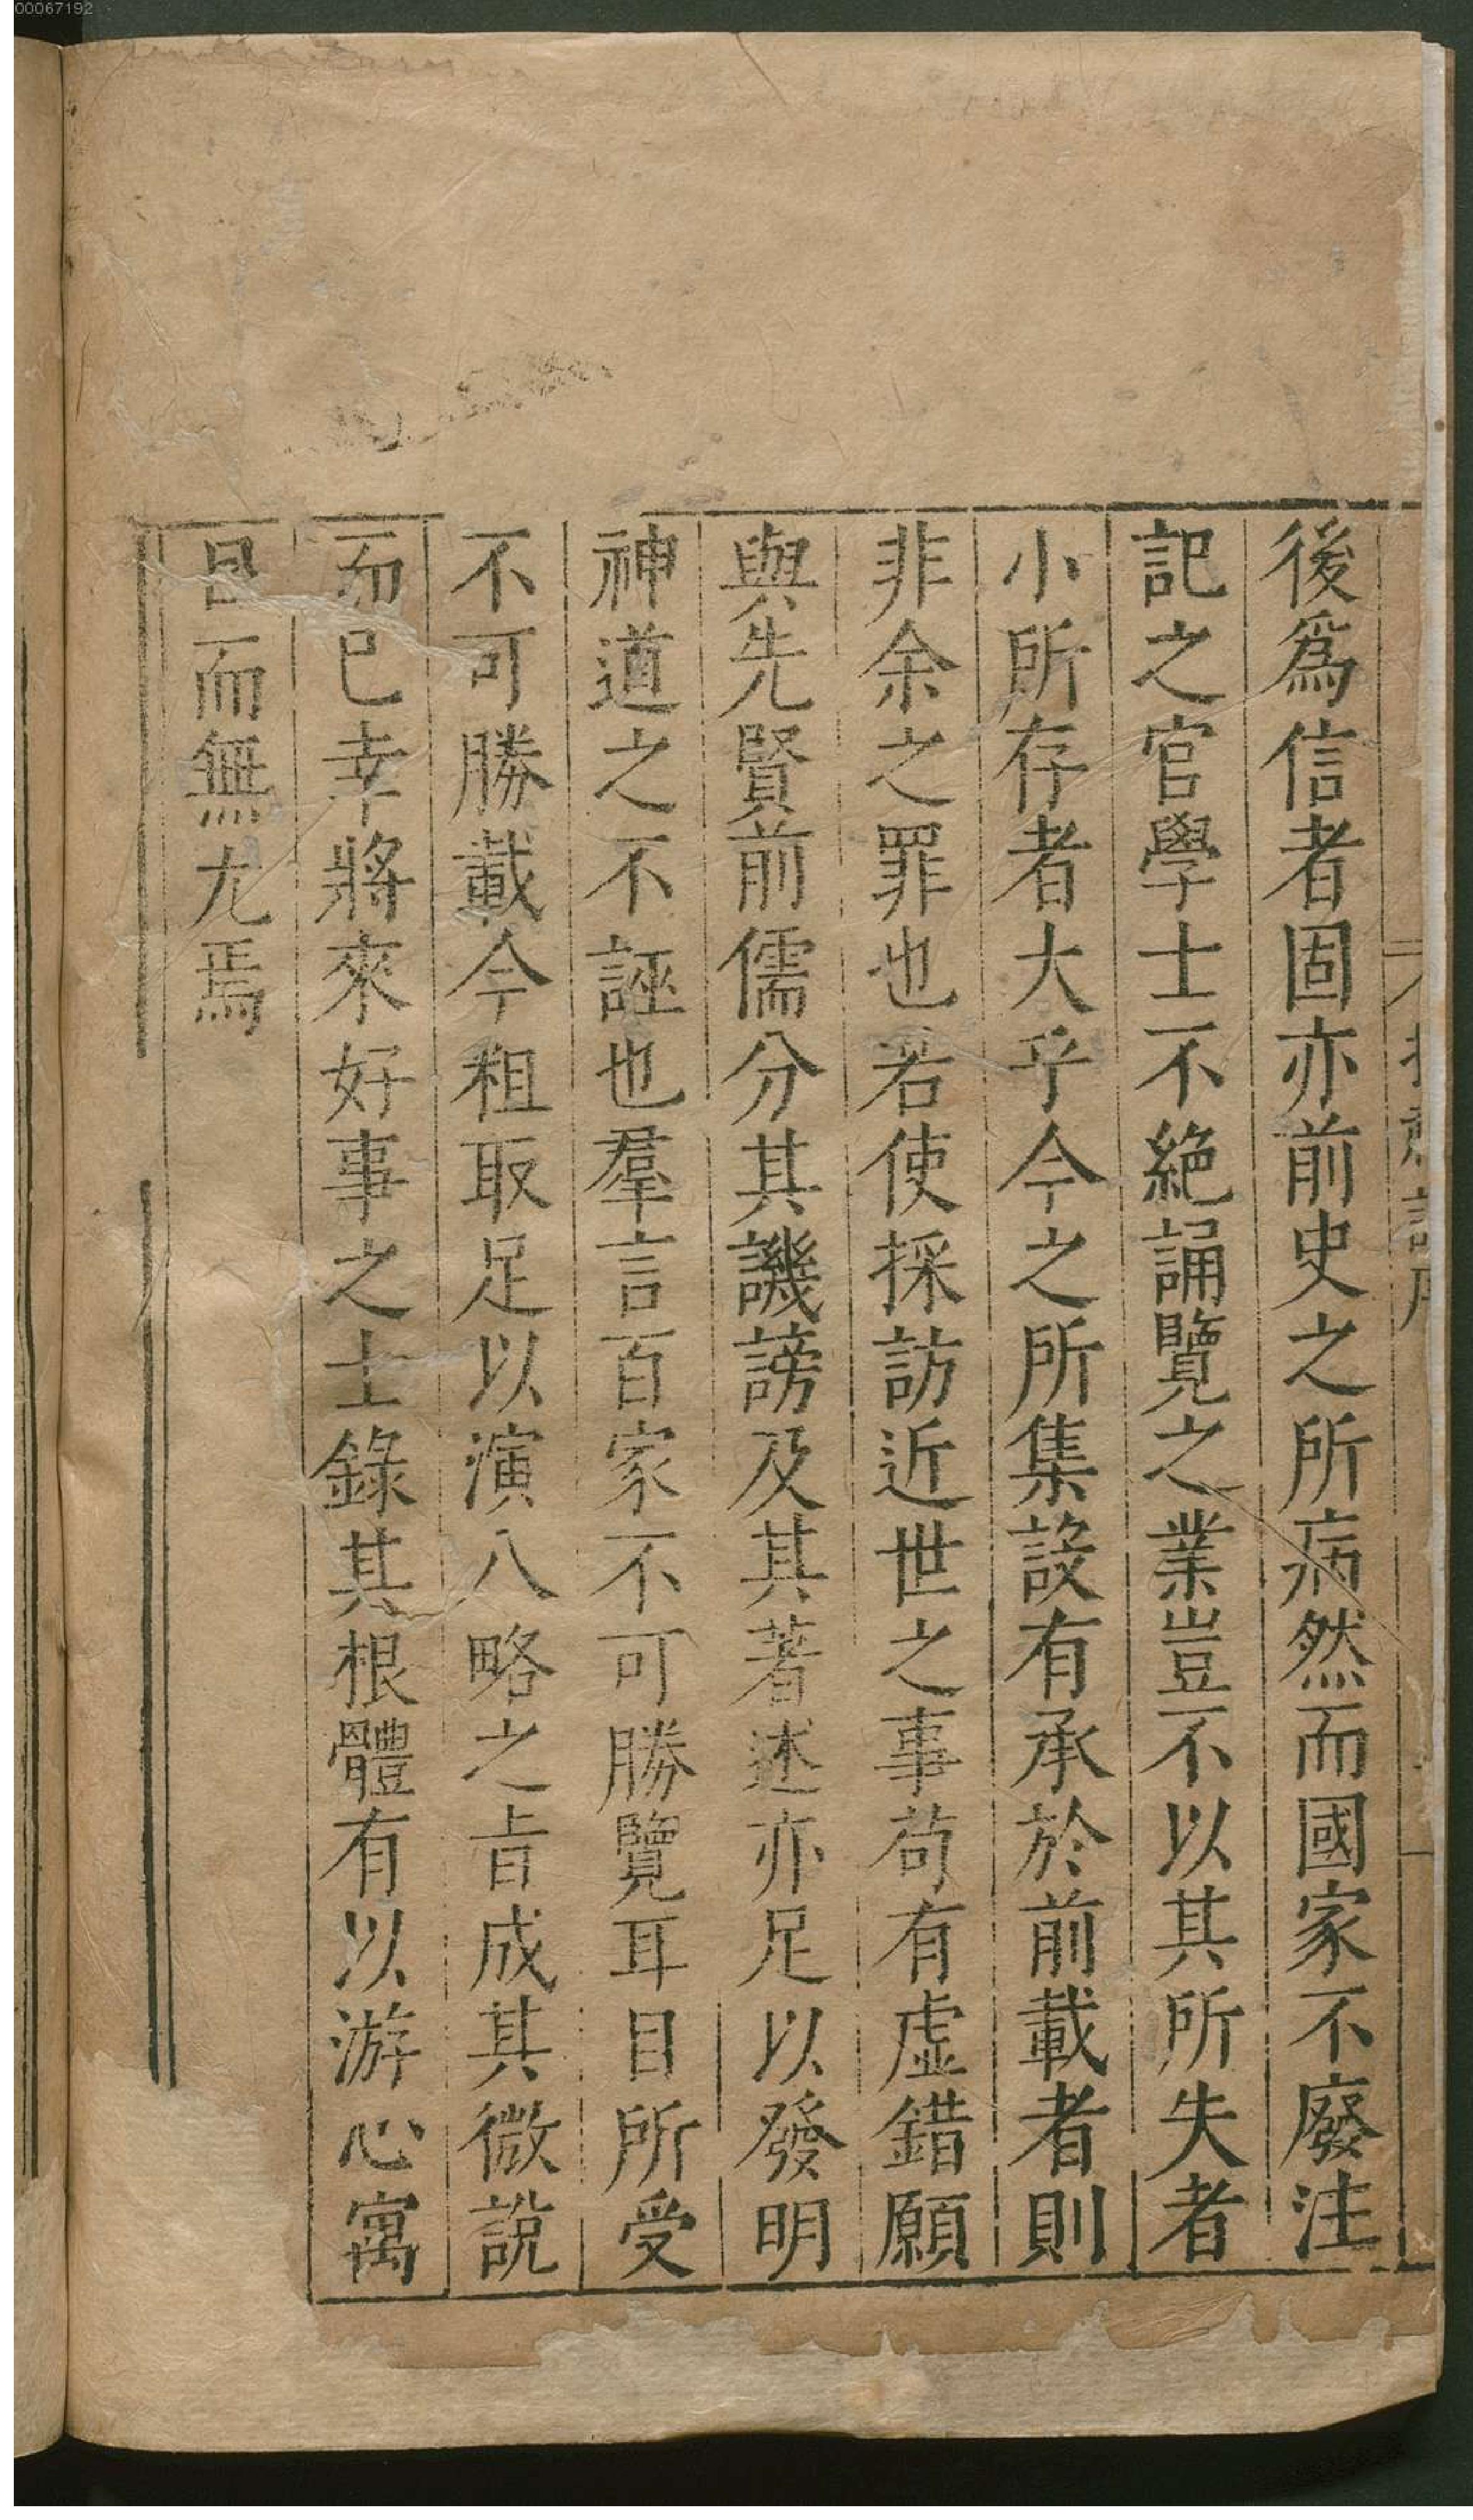 00067192
後爲信者固亦前史之所病然而國家不廢注
記之官學士不絶誦覽之業豈不以其所失者
小所存者大乎今之所集設有承於前載者則
非余之罪也若使採訪近世之事苟有虛錯願
與先賢前儒分其譏謗及其著述亦足以發明
神道之不誣也羣言百家不可勝覽耳目所受
不可勝載今粗取足以演八略之旨成其微說
而已幸將來好事之士錄其根體有以游心寓
目而無尤焉